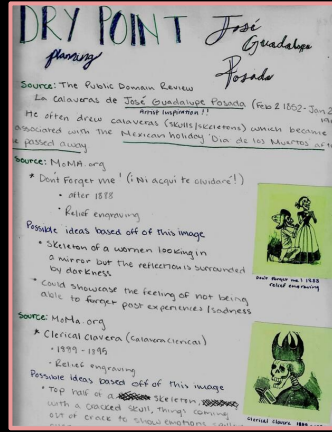 DRY POINT
planning
José Guadalupe Posada
Source: The Public Domain Review
La calaveras de José Guadalupe Posada (Feb 2 1852 - Jan 2
Artist Inspiration!!
He often drew calaveras (skulls/skeletons) which became
associated with the Mexican holiday 'Dia de los Muertos aft
e passed away
Source: MoMA.org
* Dont Forget me! (¡Ni acqui te olvidare!)
• after 1888
• Relief engraving
Possible ideas based off of this image
• Skeleton of a women looking in
a mirror but the reflection is surrounded
by darkness
• Could showcase the feeling of not being
able to forget past experiences/sadness
Dont Forget me! 1888
relief engraving
Source: MoMa.org
* Clerical Clavera (Calavera clerical)
• 1889 - 1895
• Relief engraving
Possible ideas based off of this image
• Top half of a skeleton,
with a cracked skull, things coming
out of crack to show emotions
Clerical Clavera 1889